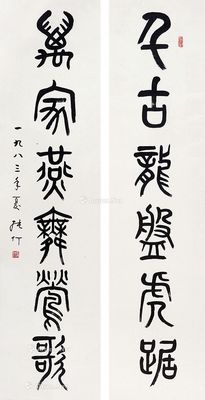 千古龍盤虎踞
萬家燕舞鶯歌
一九八三年夏